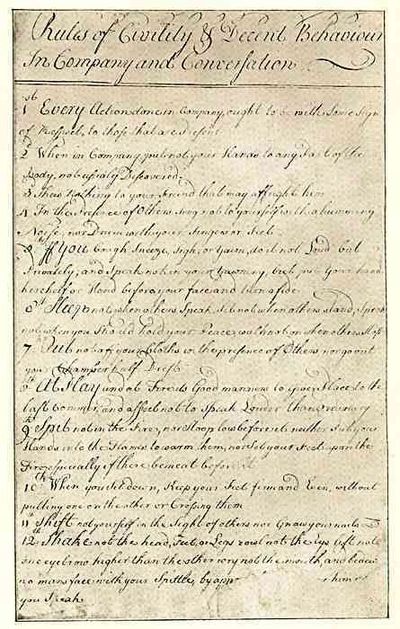 Rules of Civility & Decent Behaviour
In Company and Conversation
1st Every Action done in Company, ought to be with Some Sign
of Respect, to those that are Present
2d When in Company, put not your Hands to any Part of the
Body, not usualy Discovered
3 Shew Nothing to your Friend that may affright him
4 In the Presence of Others Sing not to yourself with a humming
Noise, nor Drum with your Fingers or Feet
5 If You Cough, Sneeze, Sigh, or Yawn, do it not Loud but
Privately; and Speak not in your Yawning, but put Your hand
kerchief or Hand before your face and turn aside
6th Sleep not when others Speak, Sit not when others stand, Speak
not when you Should hold your Peace, walk not on when others Stop
7th Put not off your Cloths in the presence of Others, nor go out
your Chamber half Drest
8th At Play and at Fire its Good manners to give Place to the
last Commer, and affect not to Speak Louder than ordinary
9th Spit not in the Fire, nor Stoop low before it neither Put your
Hands into the Flames to warm them, nor Set your Feet upon the
Fire especially if there be meat before it
10th When you Sit down, Keep your Feet firm and Even, without
putting one on the other or Crossing them
11th Shift not yourself in the Sight of others nor Gnaw your nails
12th Shake not the head, Feet, or Legs rowl not the Eys lift not
one eyebrow higher than the other wry not the mouth, and bedew
no mans face with your Spittle, by appr him
you Speak